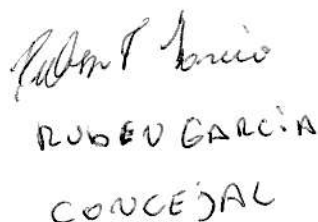 Ruben P Garcia
RUBEN GARCIA
CONCEJAL